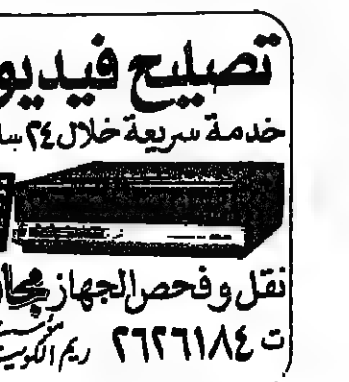 تصليح فيديو
خدمة سريعة خلال ٢٤
نقل وفحص الجهاز مجاناً
ت ٢٦٢٦١٨٤ مؤسسة ريم الكويت